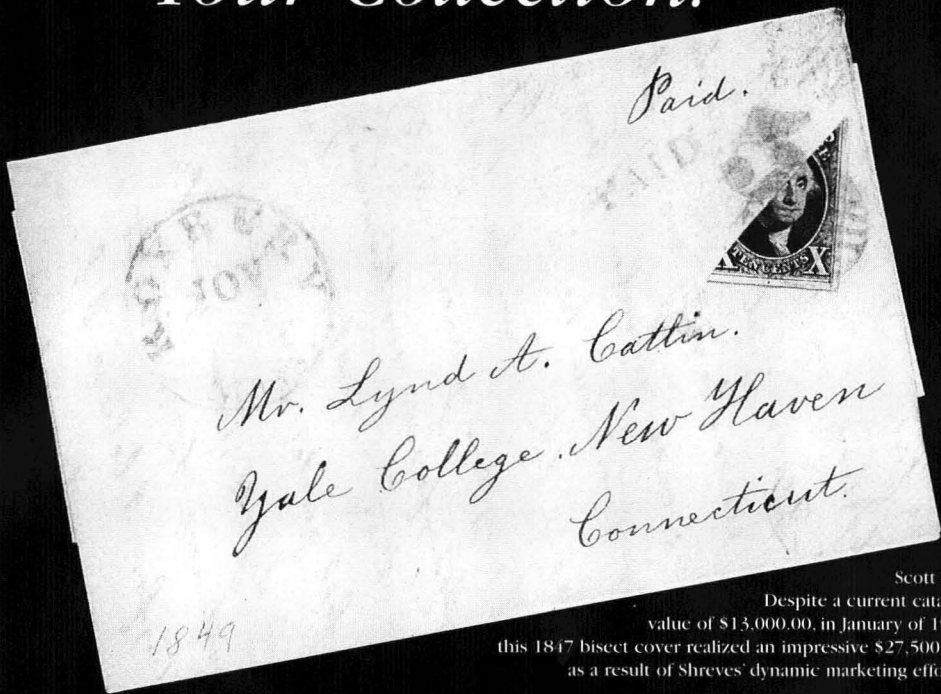 Your Collection.
Paid.
PAID
ROXBURY
NOV
TEN CENTS X
Mr. Lynd A. Catlin.
Yale College. New Haven
Connecticut.
1849
Scott
Despite a current
value of $13,000.00, in January of
this 1847 bisect cover realized an impressive $27,500
as a result of Shreves' dynamic marketing